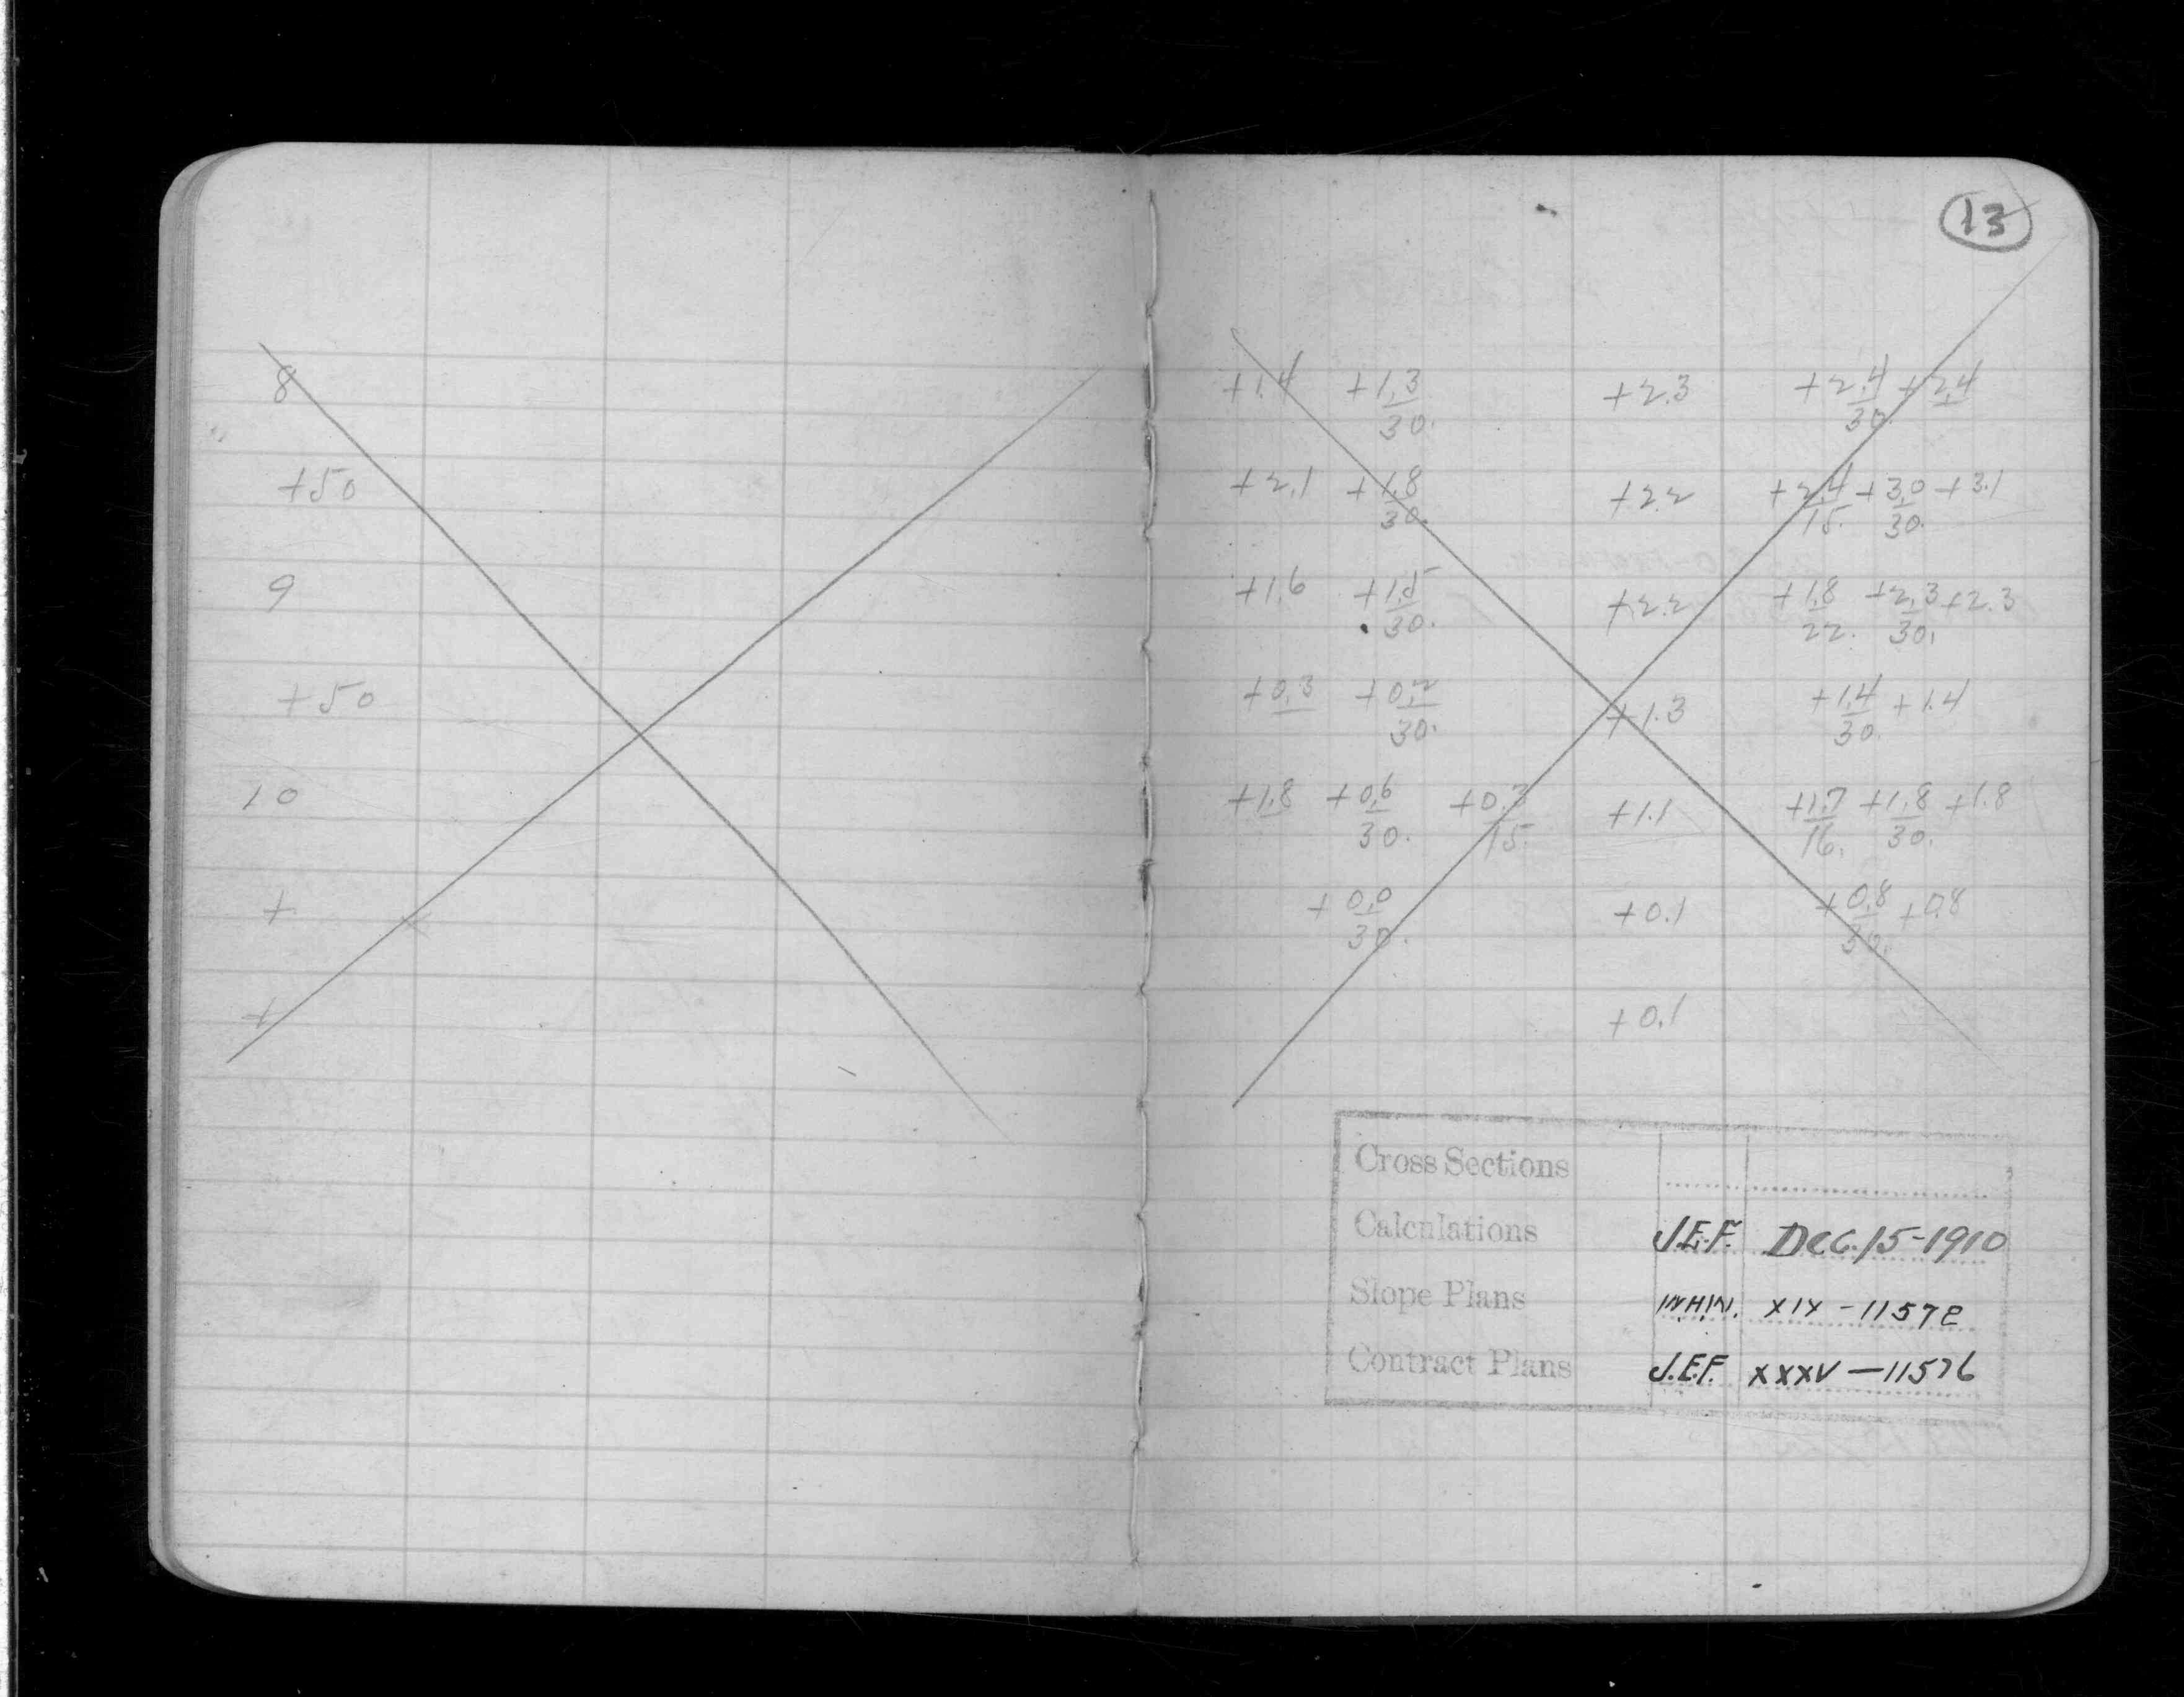 13
8 +1.4 +1.3/30. +2.3 +2.4/30. +2.4
+50 +2.1 +1.8/30. +2.2 +2.4/15. +3.0/30. +3.1
9 +1.6 +1.5/30. +2.2 +1.8/22. +2.3/30. +2.3
+50 +0.3 +0.2/30. +1.3 +1.4/30. +1.4
10 +1.8 +0.6/30. +0.3/15. +1.1 +1.7/16. +1.8/30. +1.8
+ +0.0/30. +0.1 +0.8/30. +0.8
+ +0.1
Cross Sections
Calculations J.E.F. Dec. 15-1910
Slope Plans XIX - 1157
Contract Plans J.E.F. XXXV - 11576